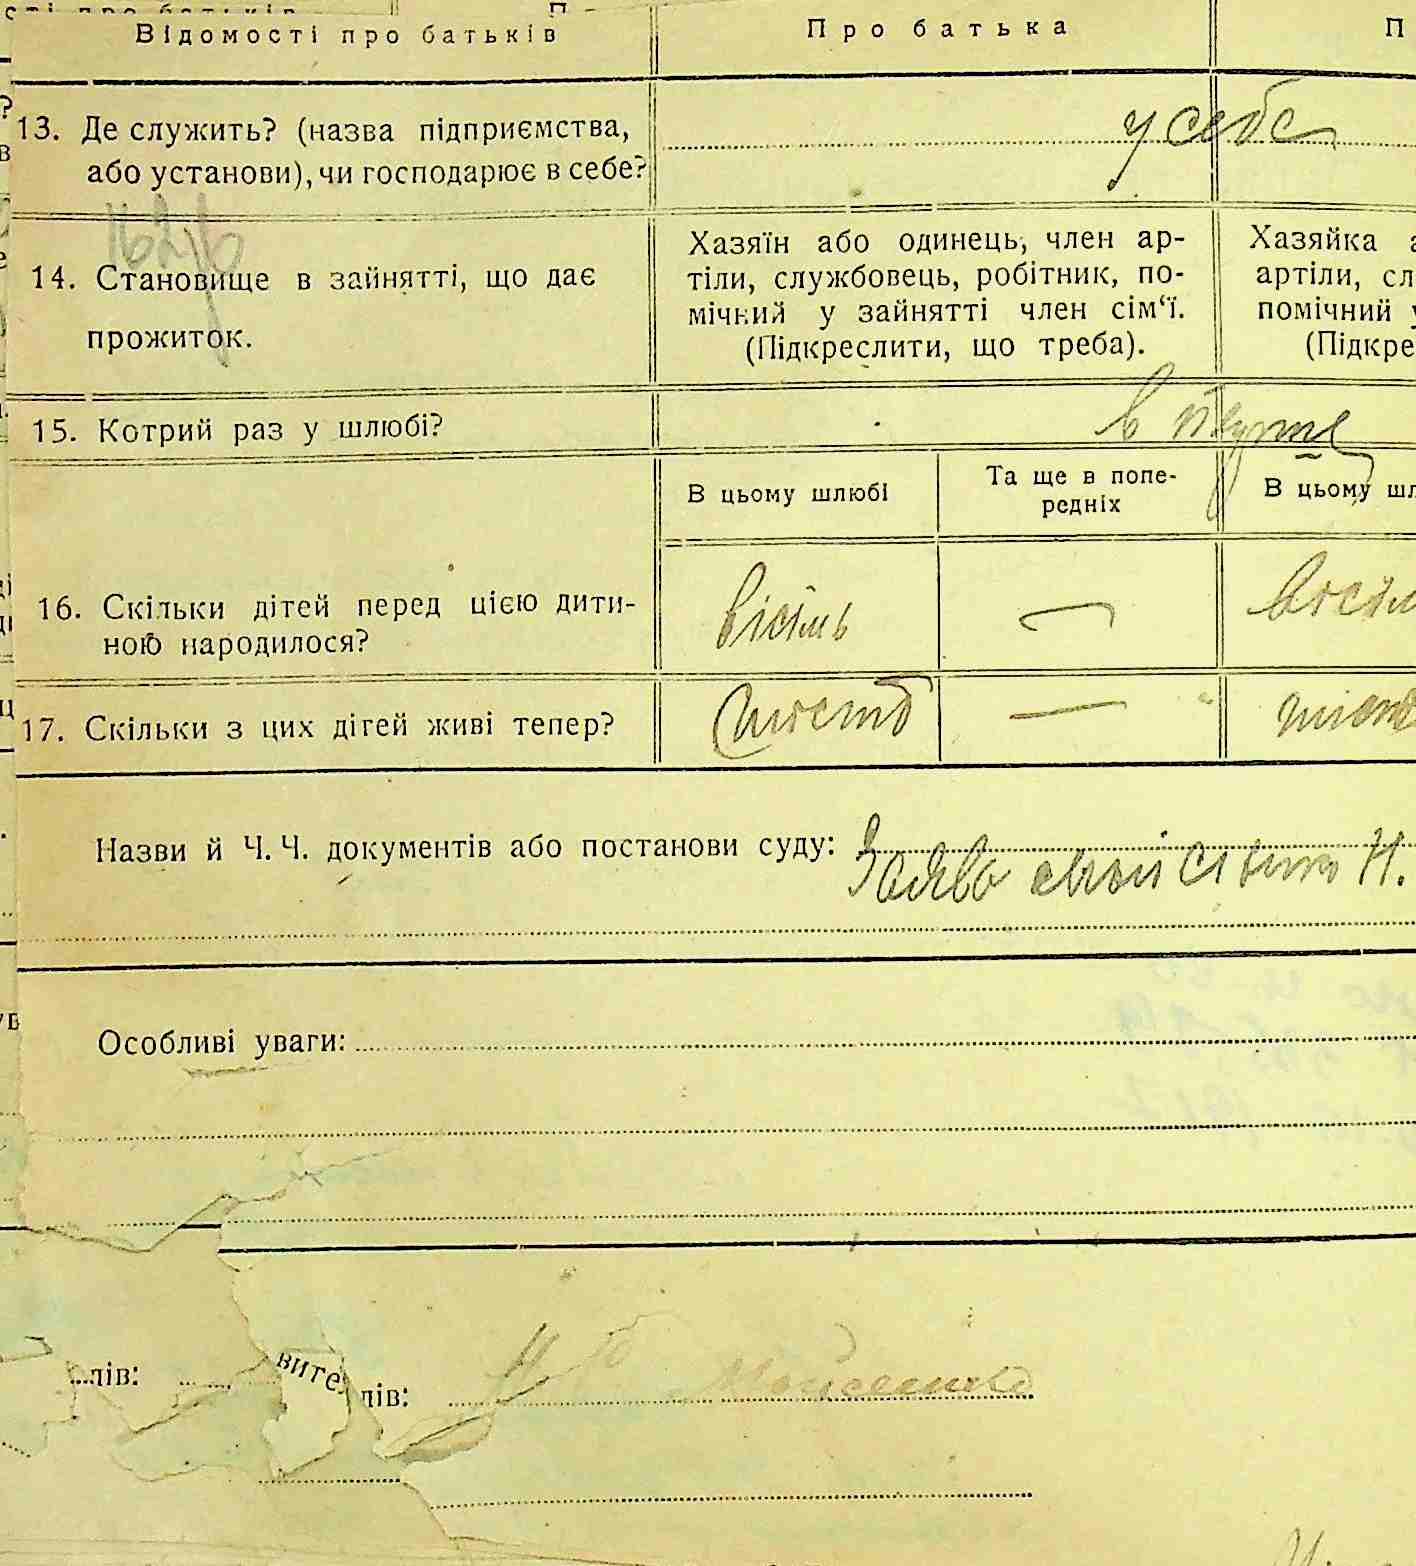 Відомості про батьків
Про батька
П
13. Де служить? (назва підприємства,
або установи), чи господарює в себе?
у себе
14. Становище в зайнятті, що дає
прожиток.
Хазяїн або одинець, член ар-
тіли, службовець, робітник, по-
мічний у зайнятті член сім‘ї.
(Підкреслити, що треба).
Хазяйка
артіли, сл
помічний у
(Підкре
15. Котрий раз у шлюбі?
в перше
В цьому шлюбі
Та ще в попе-
редніх
В цьому шл
16. Скільки дітей перед цією дити-
ною народилося?
вісімь
—
вісім
17. Скільки з цих дітей живі тепер?
шість
—
Назви й Ч. Ч. документів або постанови суду:
Заява Н.
Особливі уваги:
лів:
вите
лів: